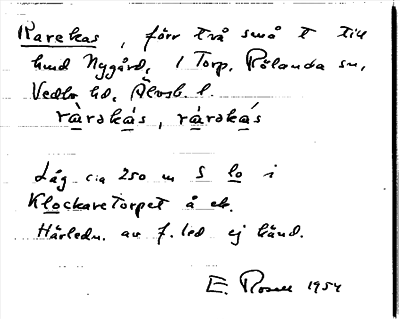 Rarekas, förr två små t till
hmd Nygård, 1 Torp, Rölanda sn,
Vedbo hd, Älvsb. l.
ràrəkás, ràrəkás
Låg c:a 250 m S lo i
Klockaretorpet å ek.
Härledn. av f. led ej känd.
E. Rosell 1954